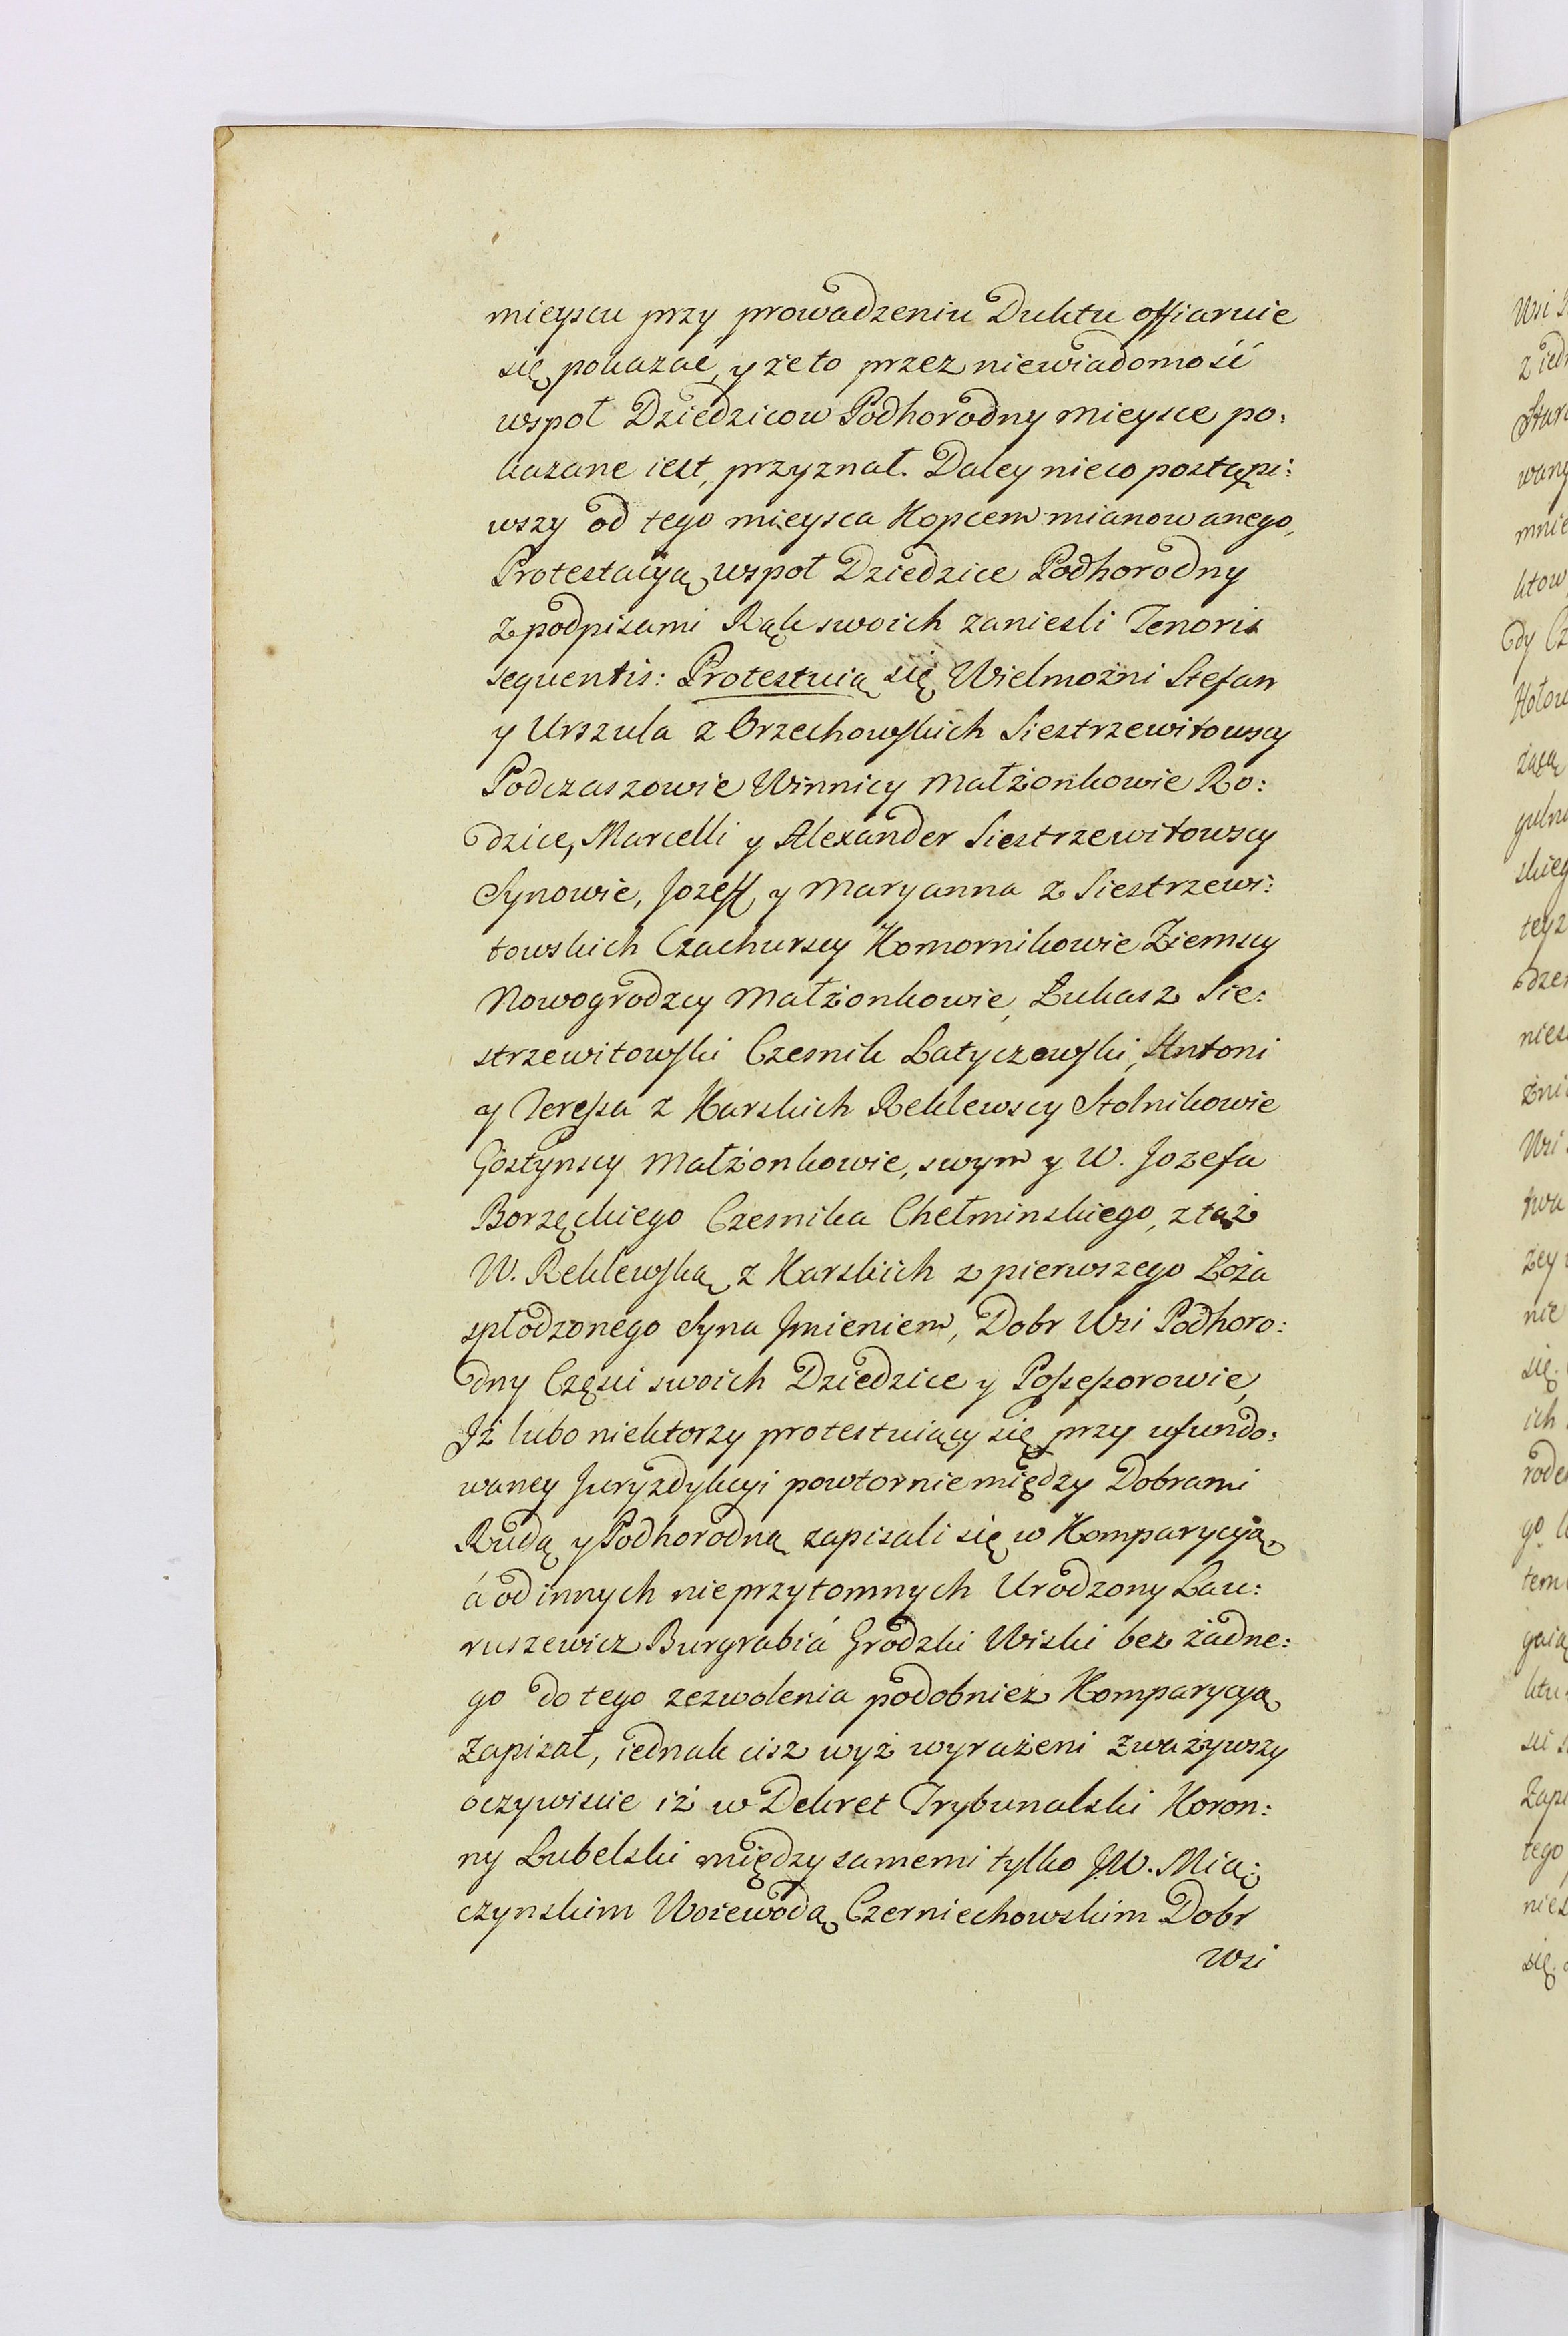 mieyscu przy prowadzeniu Duktu offiaruie
się pokazać, y że to przez niewiadomość
wspoł Dziedzicow Podhorodny mieysce po:
kazane iest, przyznał. Daley nieco postąpi:
wszy od tego mieysca Kopcem mianowanego,
Protestacyą wspoł Dziedzice Podhorodny
z podpisami Rąk swoich zaniesli Tenoris
sequentis: Protestuią się Wielmożni Stefan
y Urszula z Orzechowskich Siestrzewitowscy
Podczaszowie Winnicy Małżonkowie Ro:
dzice, Marcelli y Alexander Siestrzewitowscy
Synowie, Jozeff y Maryanna z Siestrzewi:
towskich Czachurscy Komornikowie Ziemscy
Nowogrodzcy Małżonkowie, Łukasz Sie:
strzewitowski Czesnik Latyczowski, Antoni
y Teressa z Karskich Reklewscy Stolnikowie
Gostynscy Małżonkowie, swym y W. Jozefa
Borzęckiego Czesnika Chełminskiego, z tąż
W. Reklewską z Karskich z pierwszego Łoża
spłodzonego Syna Jmieniem, Dobr Wsi Podhoro:
dny Części swoich Dziedzice y Possessorowie,
Jż lubo niektorzy protestuiący się przy ufundo:
waney Juryzdykcyi powtornie między Dobrami
Rudą y Podhorodną zapisali się w Komparycyją,
á od innych nieprzytomnych Urodzony Lau:
ruszewicz Burgrabiá Grodzki Wiski bez żadne:
go do tego zezwolenia podobnież Komparycyą
zapisał, iednak cisz wyż wyrażeni zważywszy
oczywiscie iż w Dekret Trybunalski Koron:
ny Lubelski między samemi tylko JW. Mią:
czynskim Woiewodą Czerniechowskim Dobr
Wsi